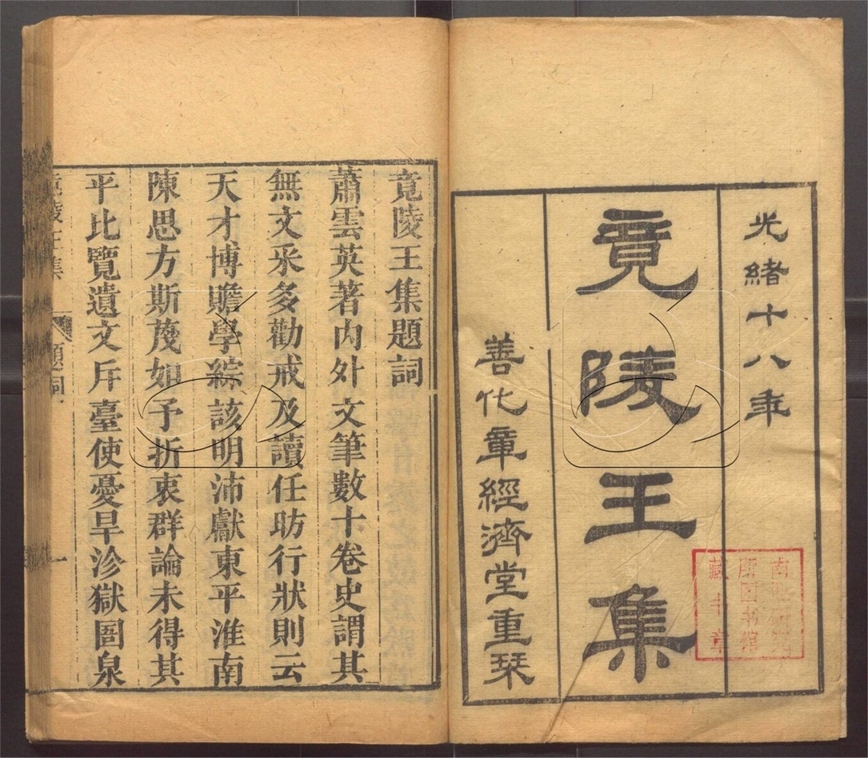 光緒十八年
竟陵王集
善化章經濟堂重栞
竟陵王集題詞
蕭雲英著內外文筆數十卷史謂其
無文采多勸戒及讀任昉行狀則云
天才博贍學綜該明沛獻東平淮南
陳思方斯蔑如予折衷群論未得其
平比覽遺文斥臺使憂旱沴獄圄泉
竟陵王集
題詞
一